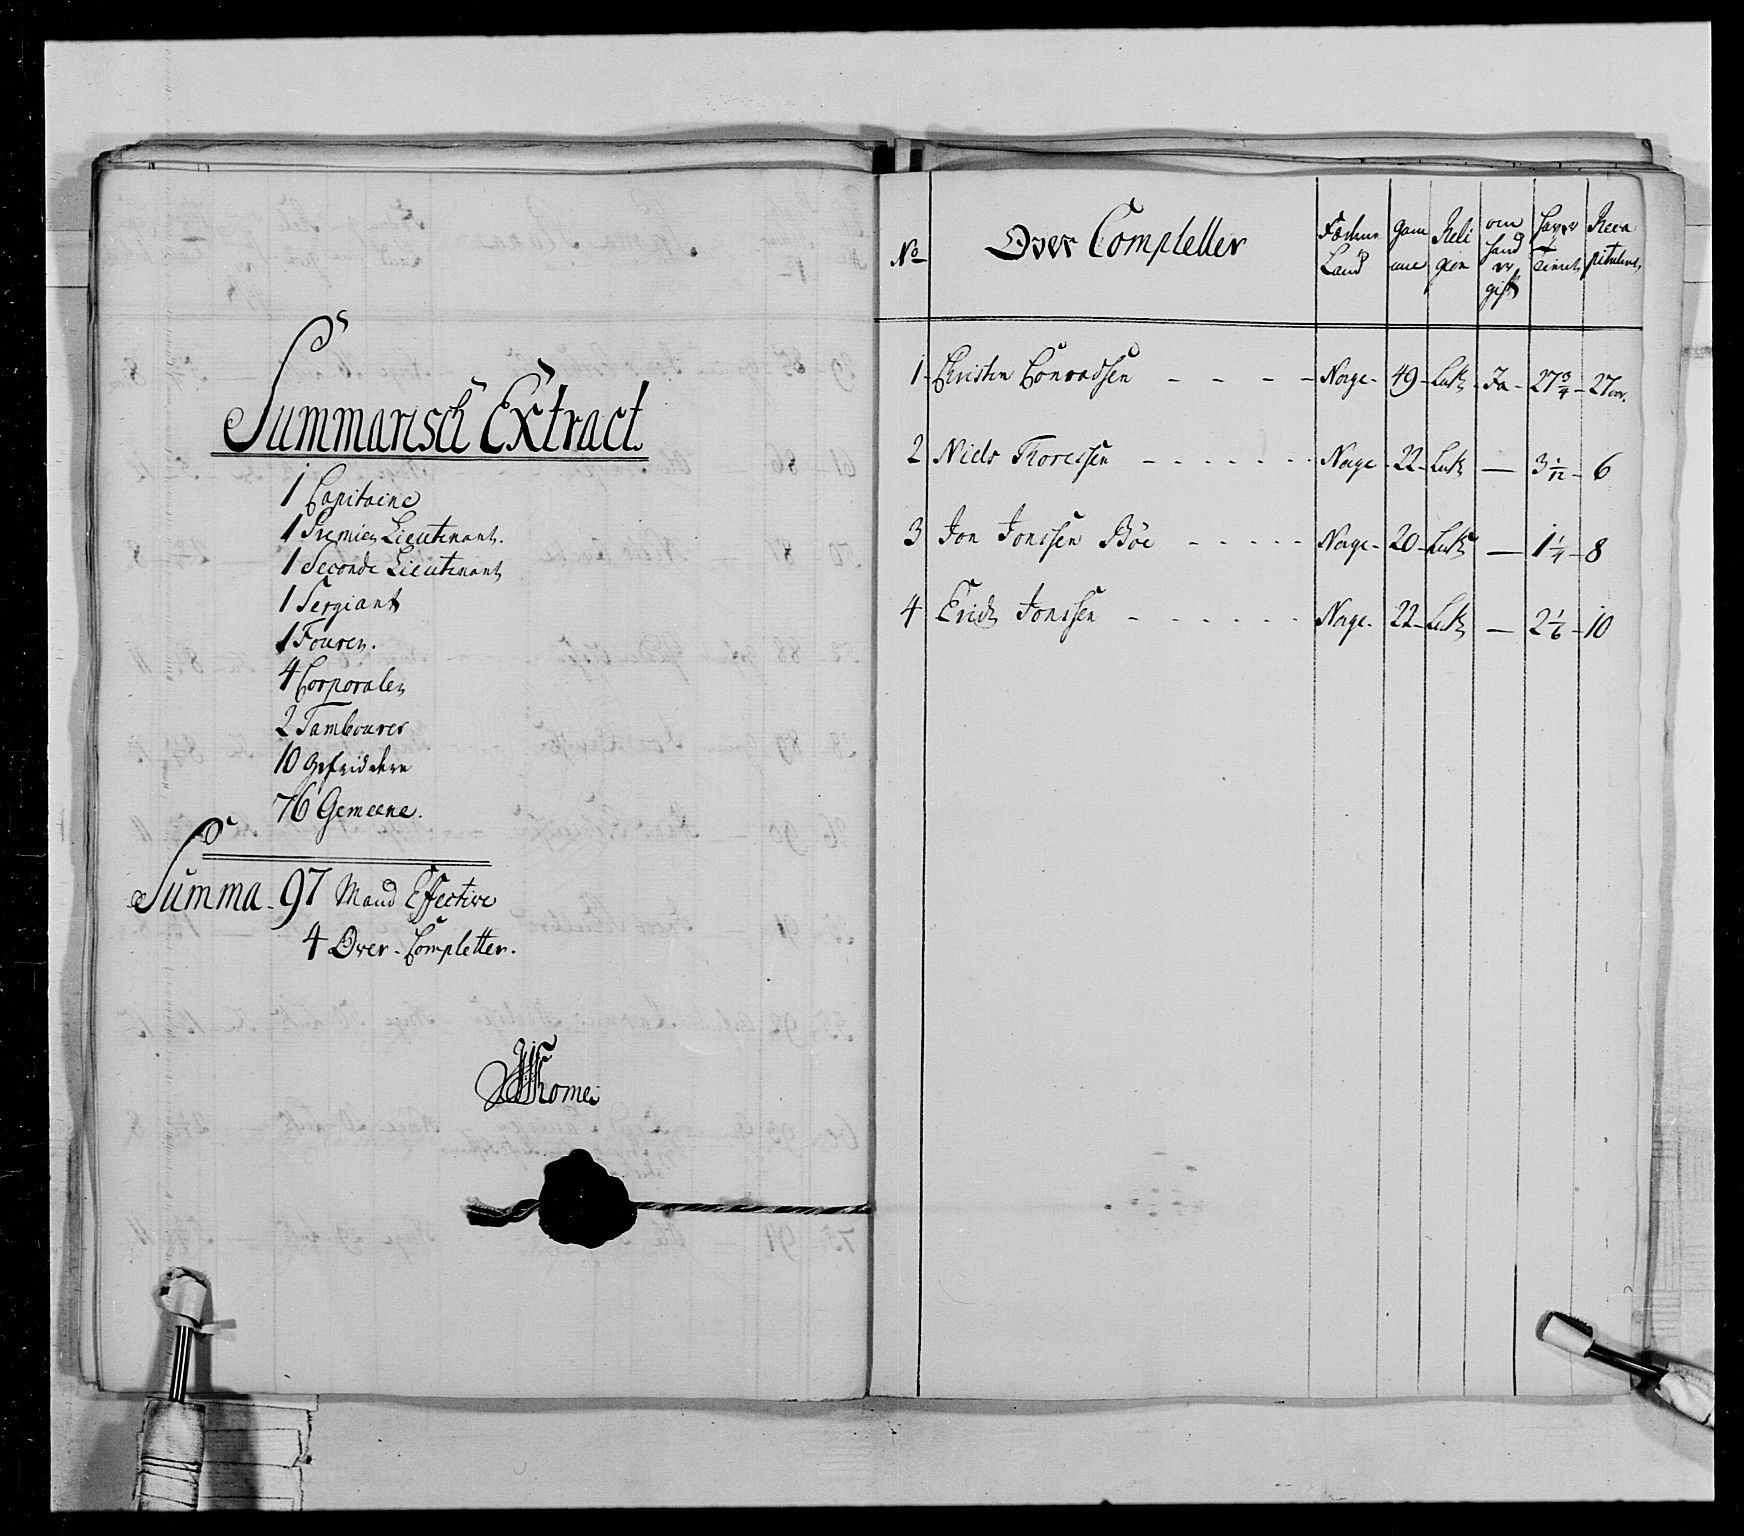 Summarisch Extract.
1 Capitaine
1 Premier Lieutenant.
1 Seconde Lieutenant
1 Sergiant
1 Fourer.
4 Corporaler
2 Tambourer
10 Gefridere
76 Gemeene.
Summa - 97 Mand Effective
4 Over-Completter.
Thome
No Over Completter Føderne Land gamme Religion om hand er gift haver tient Recapitulent
1 - Christen Conradsen - - - - Norge - 49 - Luth - Ja - 27 3/4 - 27
2 Niels Thoressen - - - - - - Norge - 22 - Luth — 3 1/12 - 6
3 Jon Jonssen Böe - - - - - Norge - 20 - Luth — 1 1/4 - 8
4 Erich Jonssen - - - - - - Norge - 22 - Luth — 2 1/6 - 10